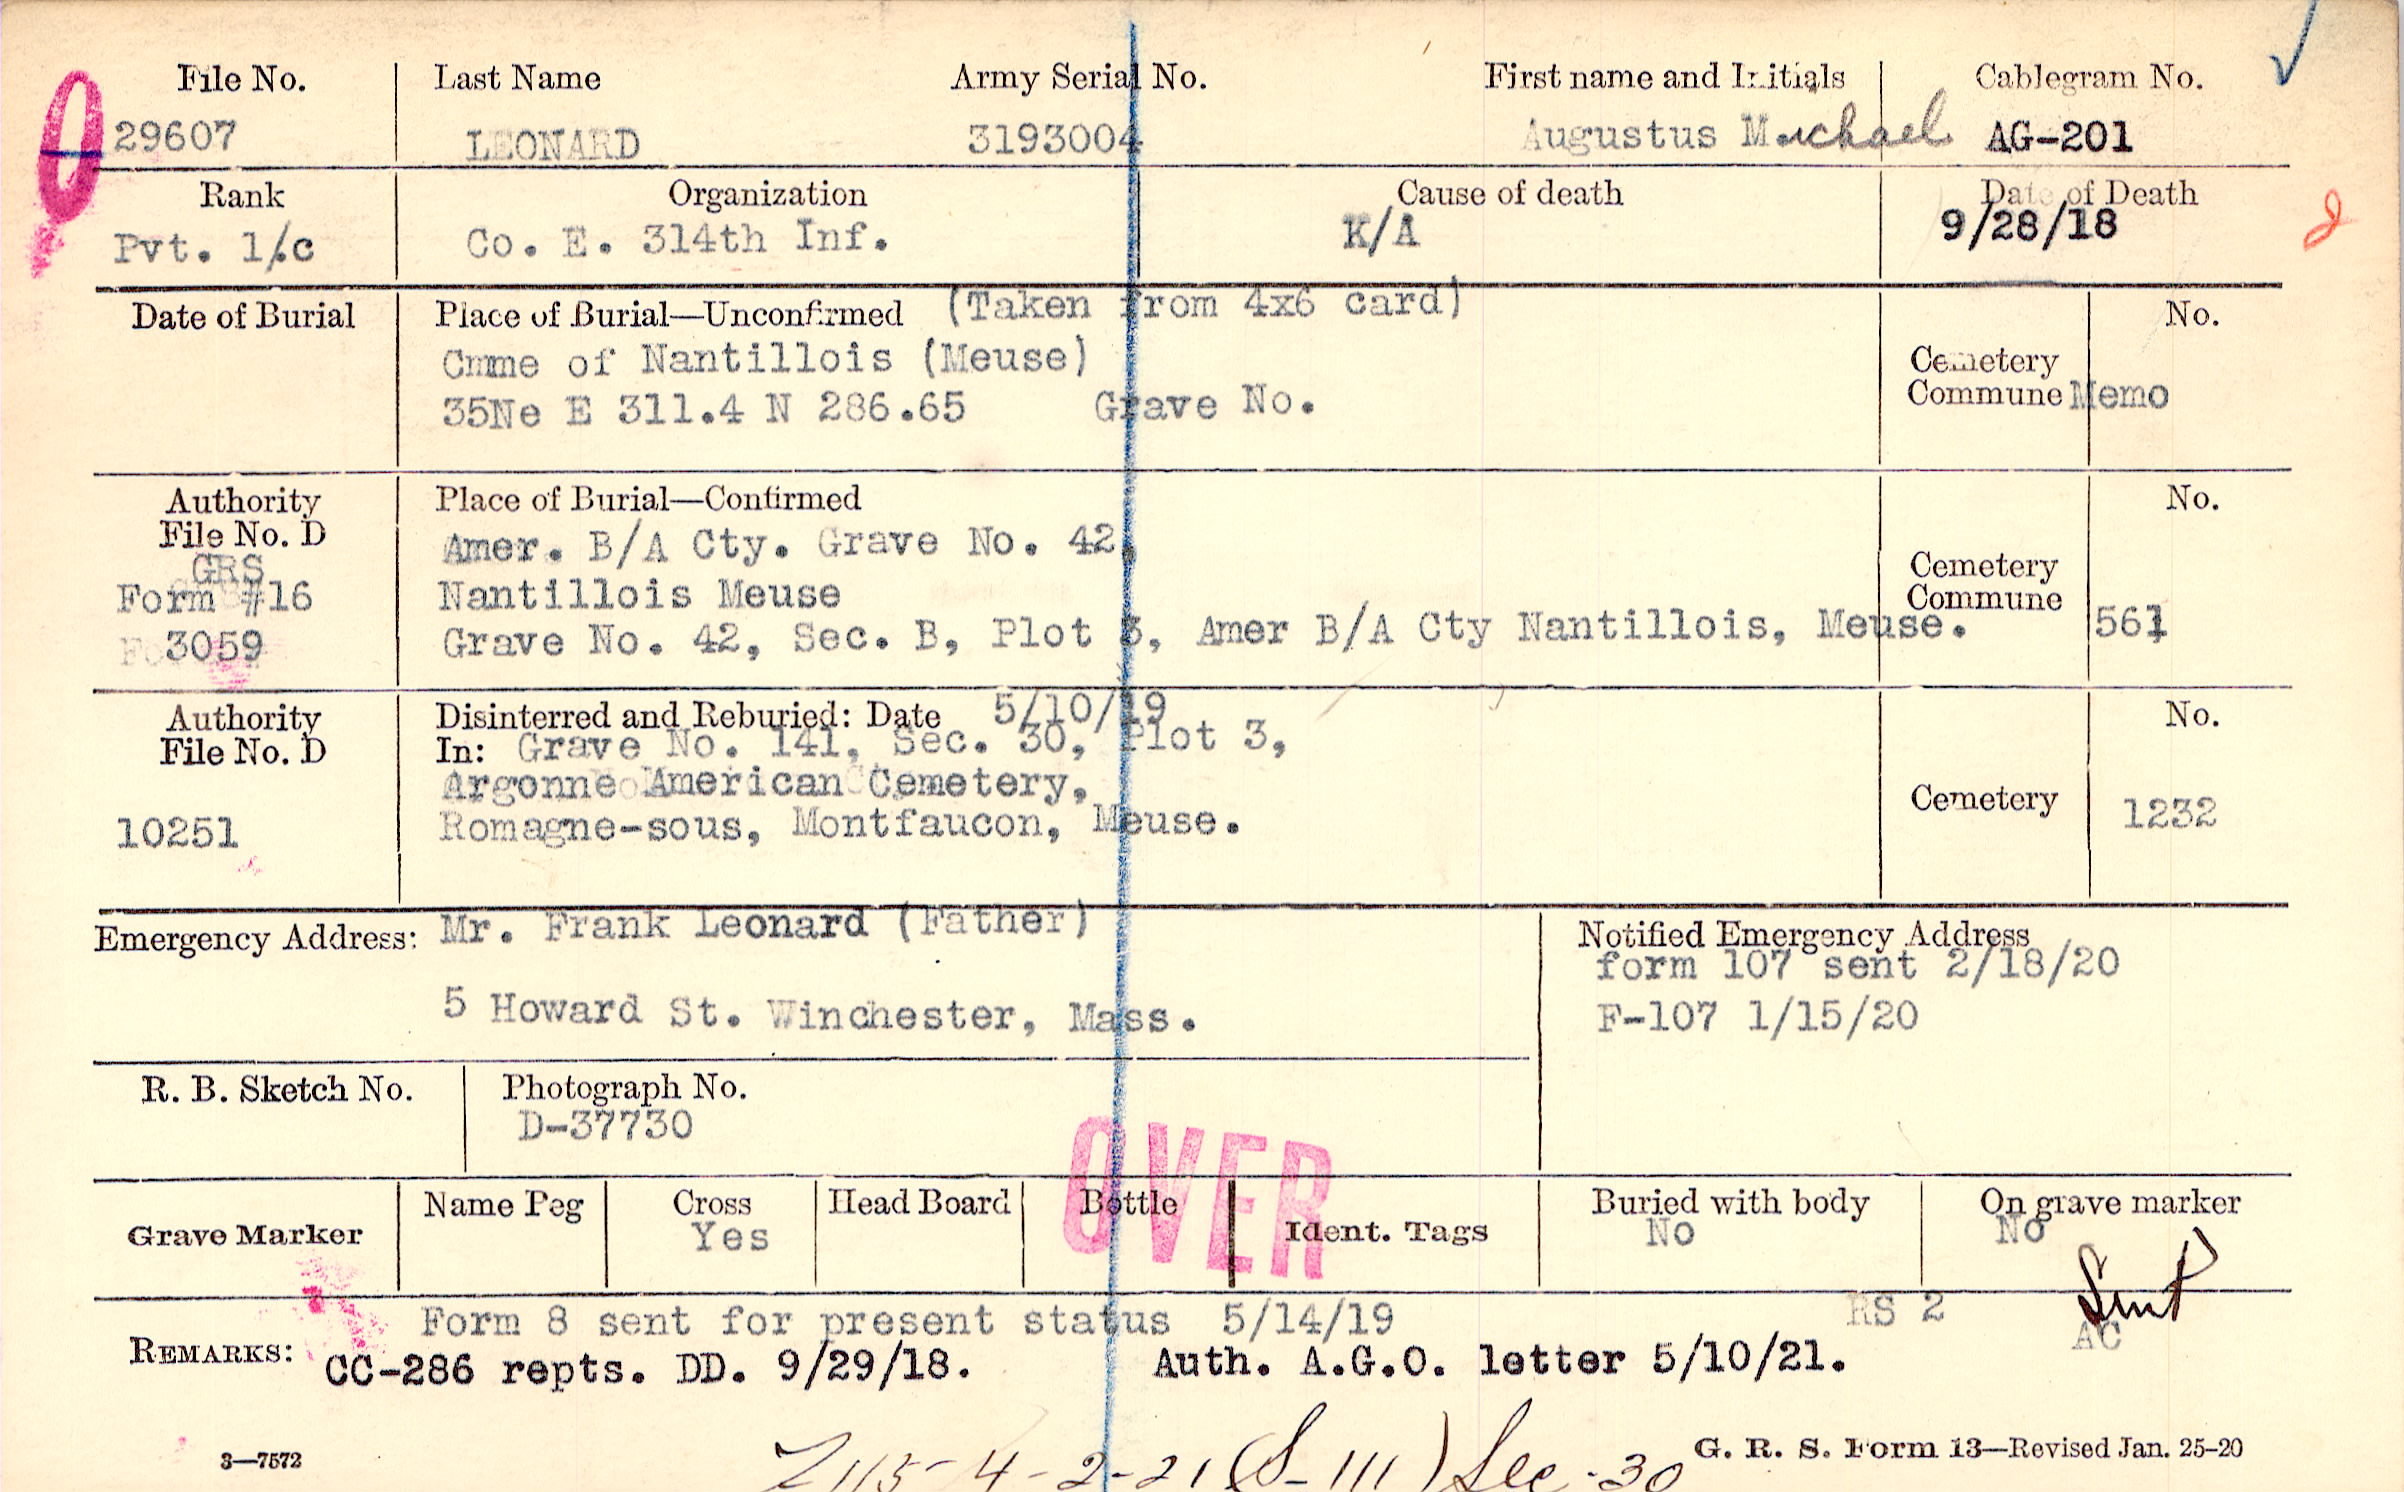 File No. Last Name Army Serial No. First name and Initials Cablegram No.
29607 LEONARD 3193004 Augustus Michael AG-201
Rank Organization Cause of death Date of Death
Pvt. 1/c Co. E. 314th Inf. K/A 9/28/18
Date of Burial Place of Burial—Unconfirmed (Taken from 4x6 card) No.
Cmme of Nantillois (Meuse) Cemetery
35Ne E 311.4 N 286.65 Grave No. Commune Memo
Authority Place of Burial—Confirmed No.
File No. D Amer. B/A Cty. Grave No. 42,
GRS
Form #16 Nantillois Meuse Cemetery Commune
3059 Grave No. 42, Sec. B, Plot 3, Amer B/A Cty Nantillois, Meuse. 561
Authority Disinterred and Reburied: Date 5/10/19 No.
File No. D In: Grave No. 141, Sec. 30, Plot 3,
Argonne American Cemetery, Cemetery
10251 Romagne-sous, Montfaucon, Meuse. 1232
Emergency Address: Mr. Frank Leonard (Father) Notified Emergency Address
form 107 sent 2/18/20
5 Howard St. Winchester, Mass. F-107 1/15/20
R. B. Sketch No. Photograph No.
D-37730
OVER
Grave Marker Name Peg Cross Head Board Bottle Ident. Tags Buried with body On grave marker
Yes No No
Form 8 sent for present status 5/14/19 RS 2 AC
REMARKS: CC-286 repts. DD. 9/29/18. Auth. A.G.O. letter 5/10/21.
3—7572 G. R. S. Form 13—Revised Jan. 25-20
115-4-2-21 (S-111) Sec-30